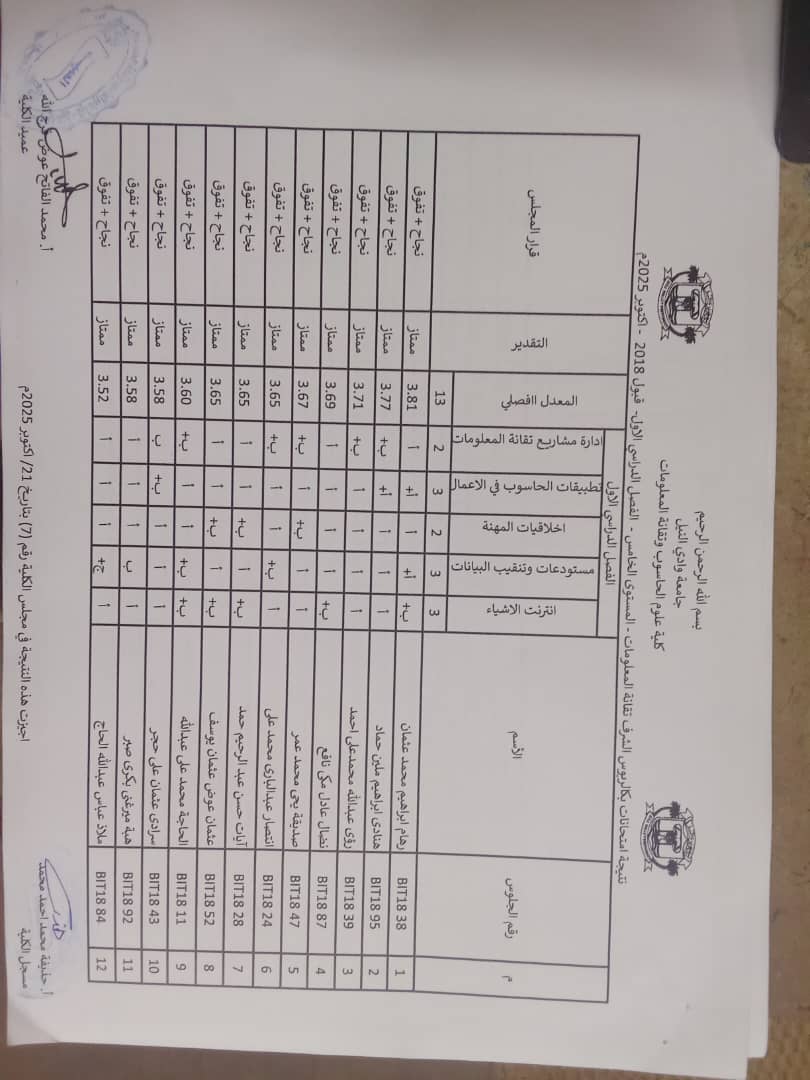 بسم الله الرحمن الرحيم
جامعة وادي النيل
كلية علوم الحاسوب وتقانة المعلومات
نتيجة امتحانات بكالريوس الشرف تقانة المعلومات - المستوى الخامس - الفصل الدراسي الاول- قبول 2018 - اكتوبر 2025م
م رقم الجلوس الأسم الفصل الدراسي الاول المعدل اافصلي التقدير قرار المجلس
انترنت الاشياء مستودعات وتنقيب البيانات اخلاقيات المهنة تطبيقات الحاسوب في الاعمال ادارة مشاريع تقانة المعلومات
3 3 2 3 2 13
1 BIT18 38 رهام ابراهيم محمد عثمان ب+ أ+ أ أ+ أ 3.81 ممتاز نجاح + تفوق
2 BIT18 95 هنادى ابراهيم ملين حماد أ أ أ أ+ ب+ 3.77 ممتاز نجاح + تفوق
3 BIT18 39 رؤى عبدالله محمدعلى احمد أ أ أ أ ب+ 3.71 ممتاز نجاح + تفوق
4 BIT18 87 نضال عادل مكى نافع ب+ أ أ أ أ 3.69 ممتاز نجاح + تفوق
5 BIT18 47 صديقة يحى محمد عمر أ أ ب+ أ ب+ 3.67 ممتاز نجاح + تفوق
6 BIT18 24 انتصار عبدالبارى محمد على أ ب+ أ أ ب+ 3.65 ممتاز نجاح + تفوق
7 BIT18 28 آيات حسن عبد الرحيم حمد ب+ أ ب+ أ أ 3.65 ممتاز نجاح + تفوق
8 BIT18 52 عثمان عوض عثمان يوسف ب+ أ ب+ أ أ 3.65 ممتاز نجاح + تفوق
9 BIT18 11 الحاجة محمد على عبدالله ب+ ب+ أ أ ب+ 3.60 ممتاز نجاح + تفوق
10 BIT18 43 سرادى عثمان على حجر أ أ أ ب+ ب 3.58 ممتاز نجاح + تفوق
11 BIT18 92 هبة ميرغنى بكرى صبر أ ب أ أ أ 3.58 ممتاز نجاح + تفوق
12 BIT18 84 ملاذ عباس عبدالله الحاج أ ج+ أ أ أ 3.52 ممتاز نجاح + تفوق
أ. حليفة محمد احمد محمد أ. محمد الفاتح عوض فرج الله
مسجل الكلية اجيزت هذه النتيجة في مجلس الكلية رقم (7) بتاريخ 21/ اكتوبر 2025م عميد الكلية